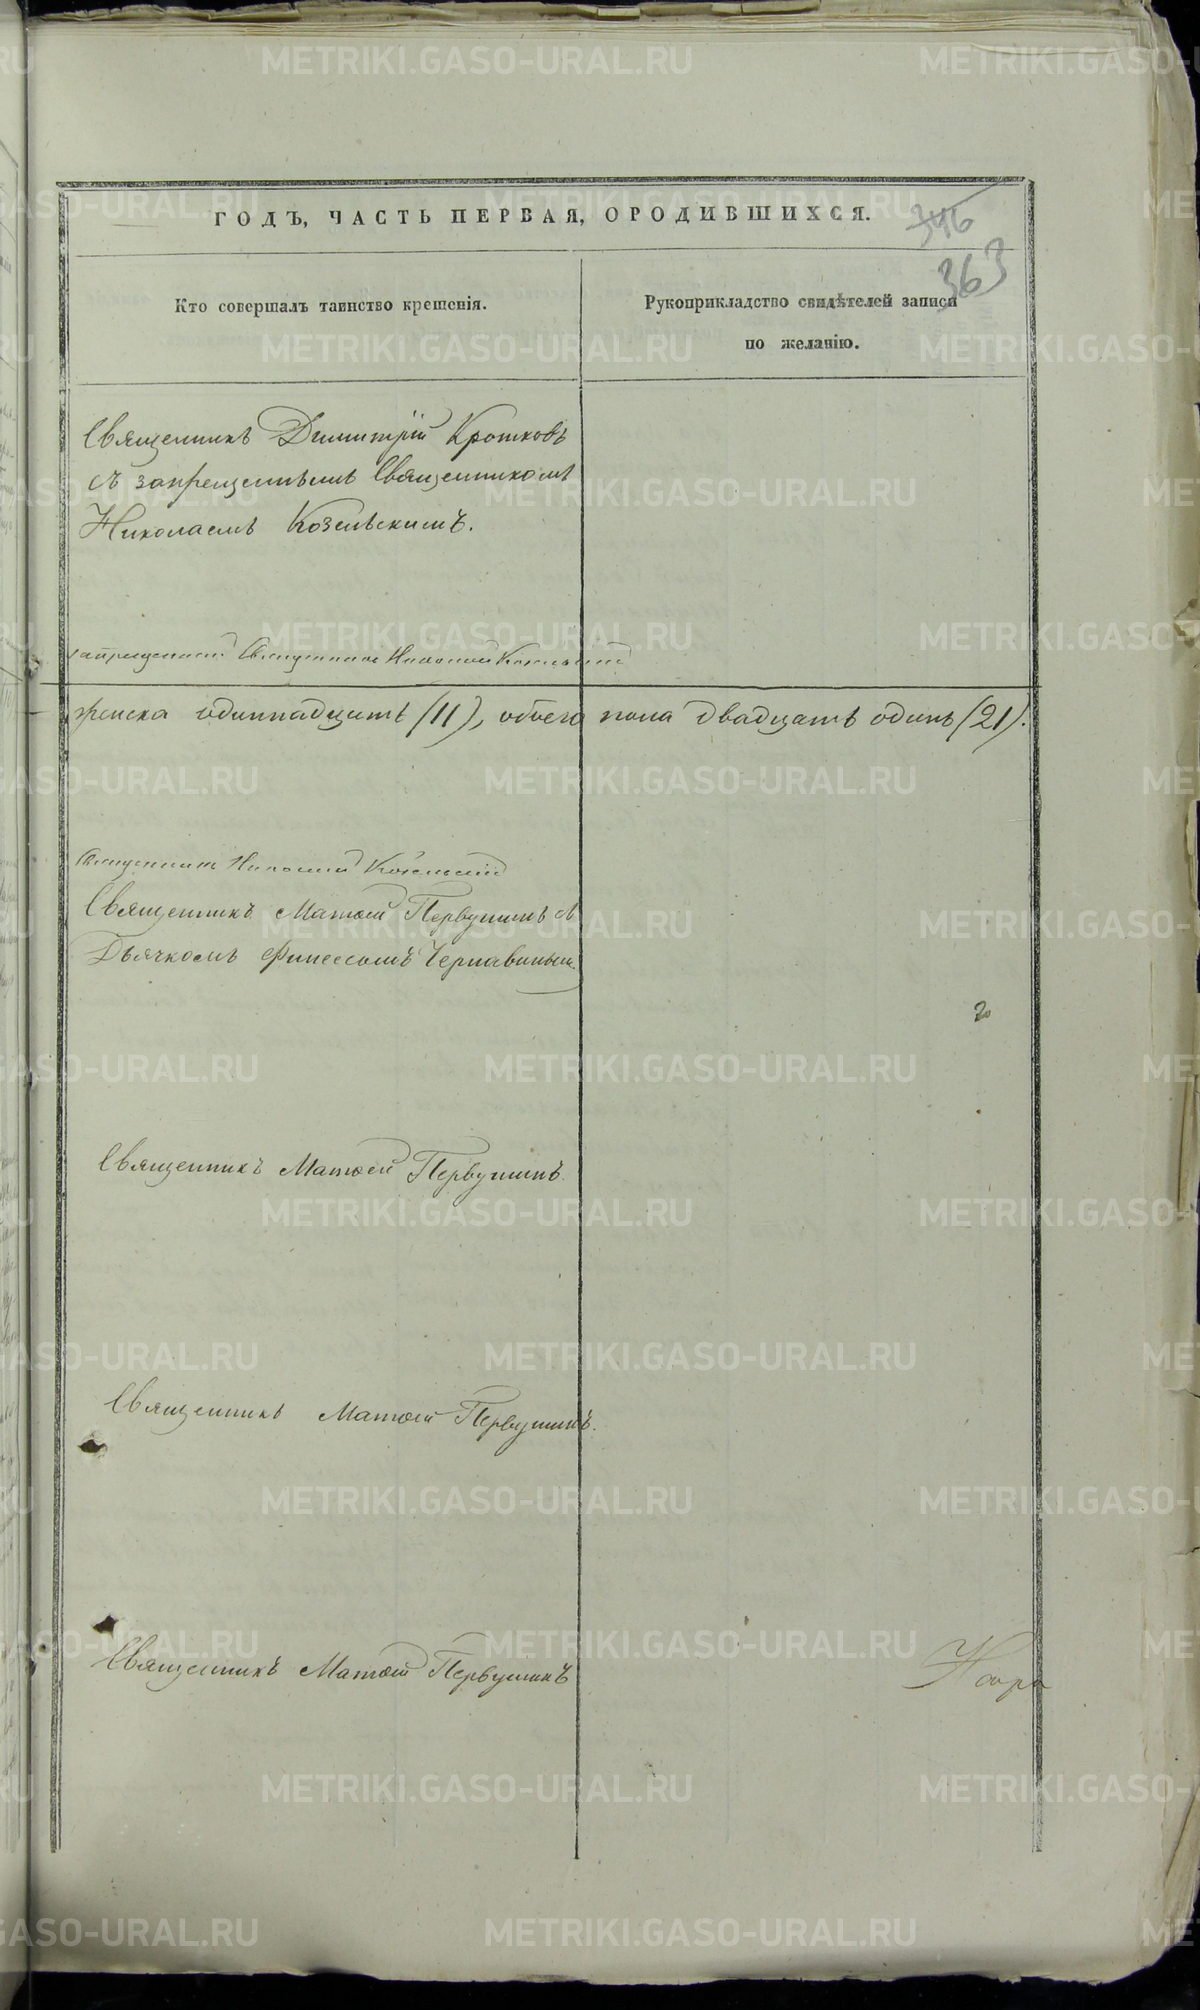 ГОДЪ, ЧАСТЬ ПЕРВАЯ, ОРОДИВШИХСЯ.
346
363
Кто совершалъ таинство крещенія.
Рукоприкладство свидѣтелей записи
по желанію.
Священникъ Димитрій Кротковъ
съ запрещеннымъ Священникомъ
Николаемъ Козельскимъ.
запрещенный Священникъ Николай Козельский
женска одиннадцать (11), обоего пола двадцать одинъ (21).
Священникъ Николай Козельскій
Священникъ Матѳей Первушинъ съ
Дьячкомъ Финеесомъ Чернавинымъ
Священникъ Матѳей Первушинъ.
Священникъ Матѳей Первушинъ.
Священникъ Матѳей Первушинъ
METRIKI.GASO-URAL.RU